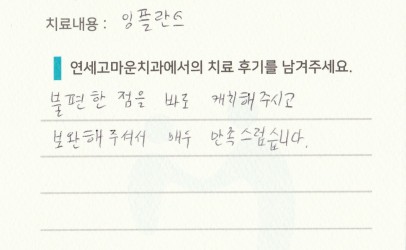 치료내용 : 임플란트
연세고마운치과에서의 치료 후기를 남겨주세요.
불편한 점을 바로 캐치해주시고
보완해주셔서 매우 만족스럽습니다.